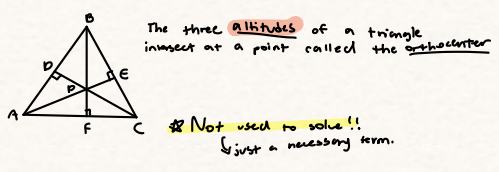 B
The three altitudes of a triangle
intersect at a point called the orthocenter
D
E
P
A
F
C
☆ Not used to solve!!
↳ just a necessary term.